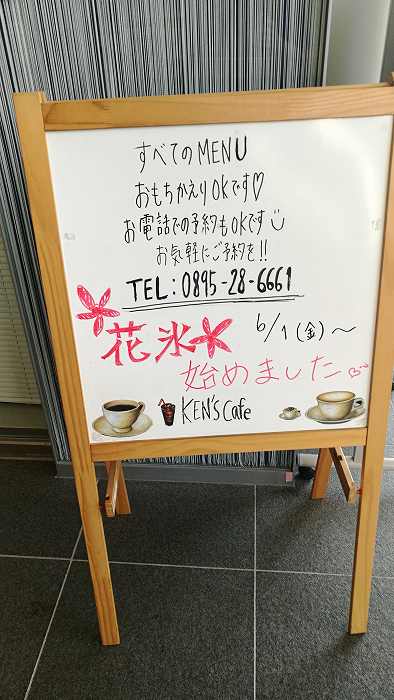 すべてのMENU
おもちかえりOKです♡
お電話での予約もOKです
お気軽にご予約を!!
TEL:0895-28-6661
花氷 6/1(金)~
始めました
KEN'S Cafe